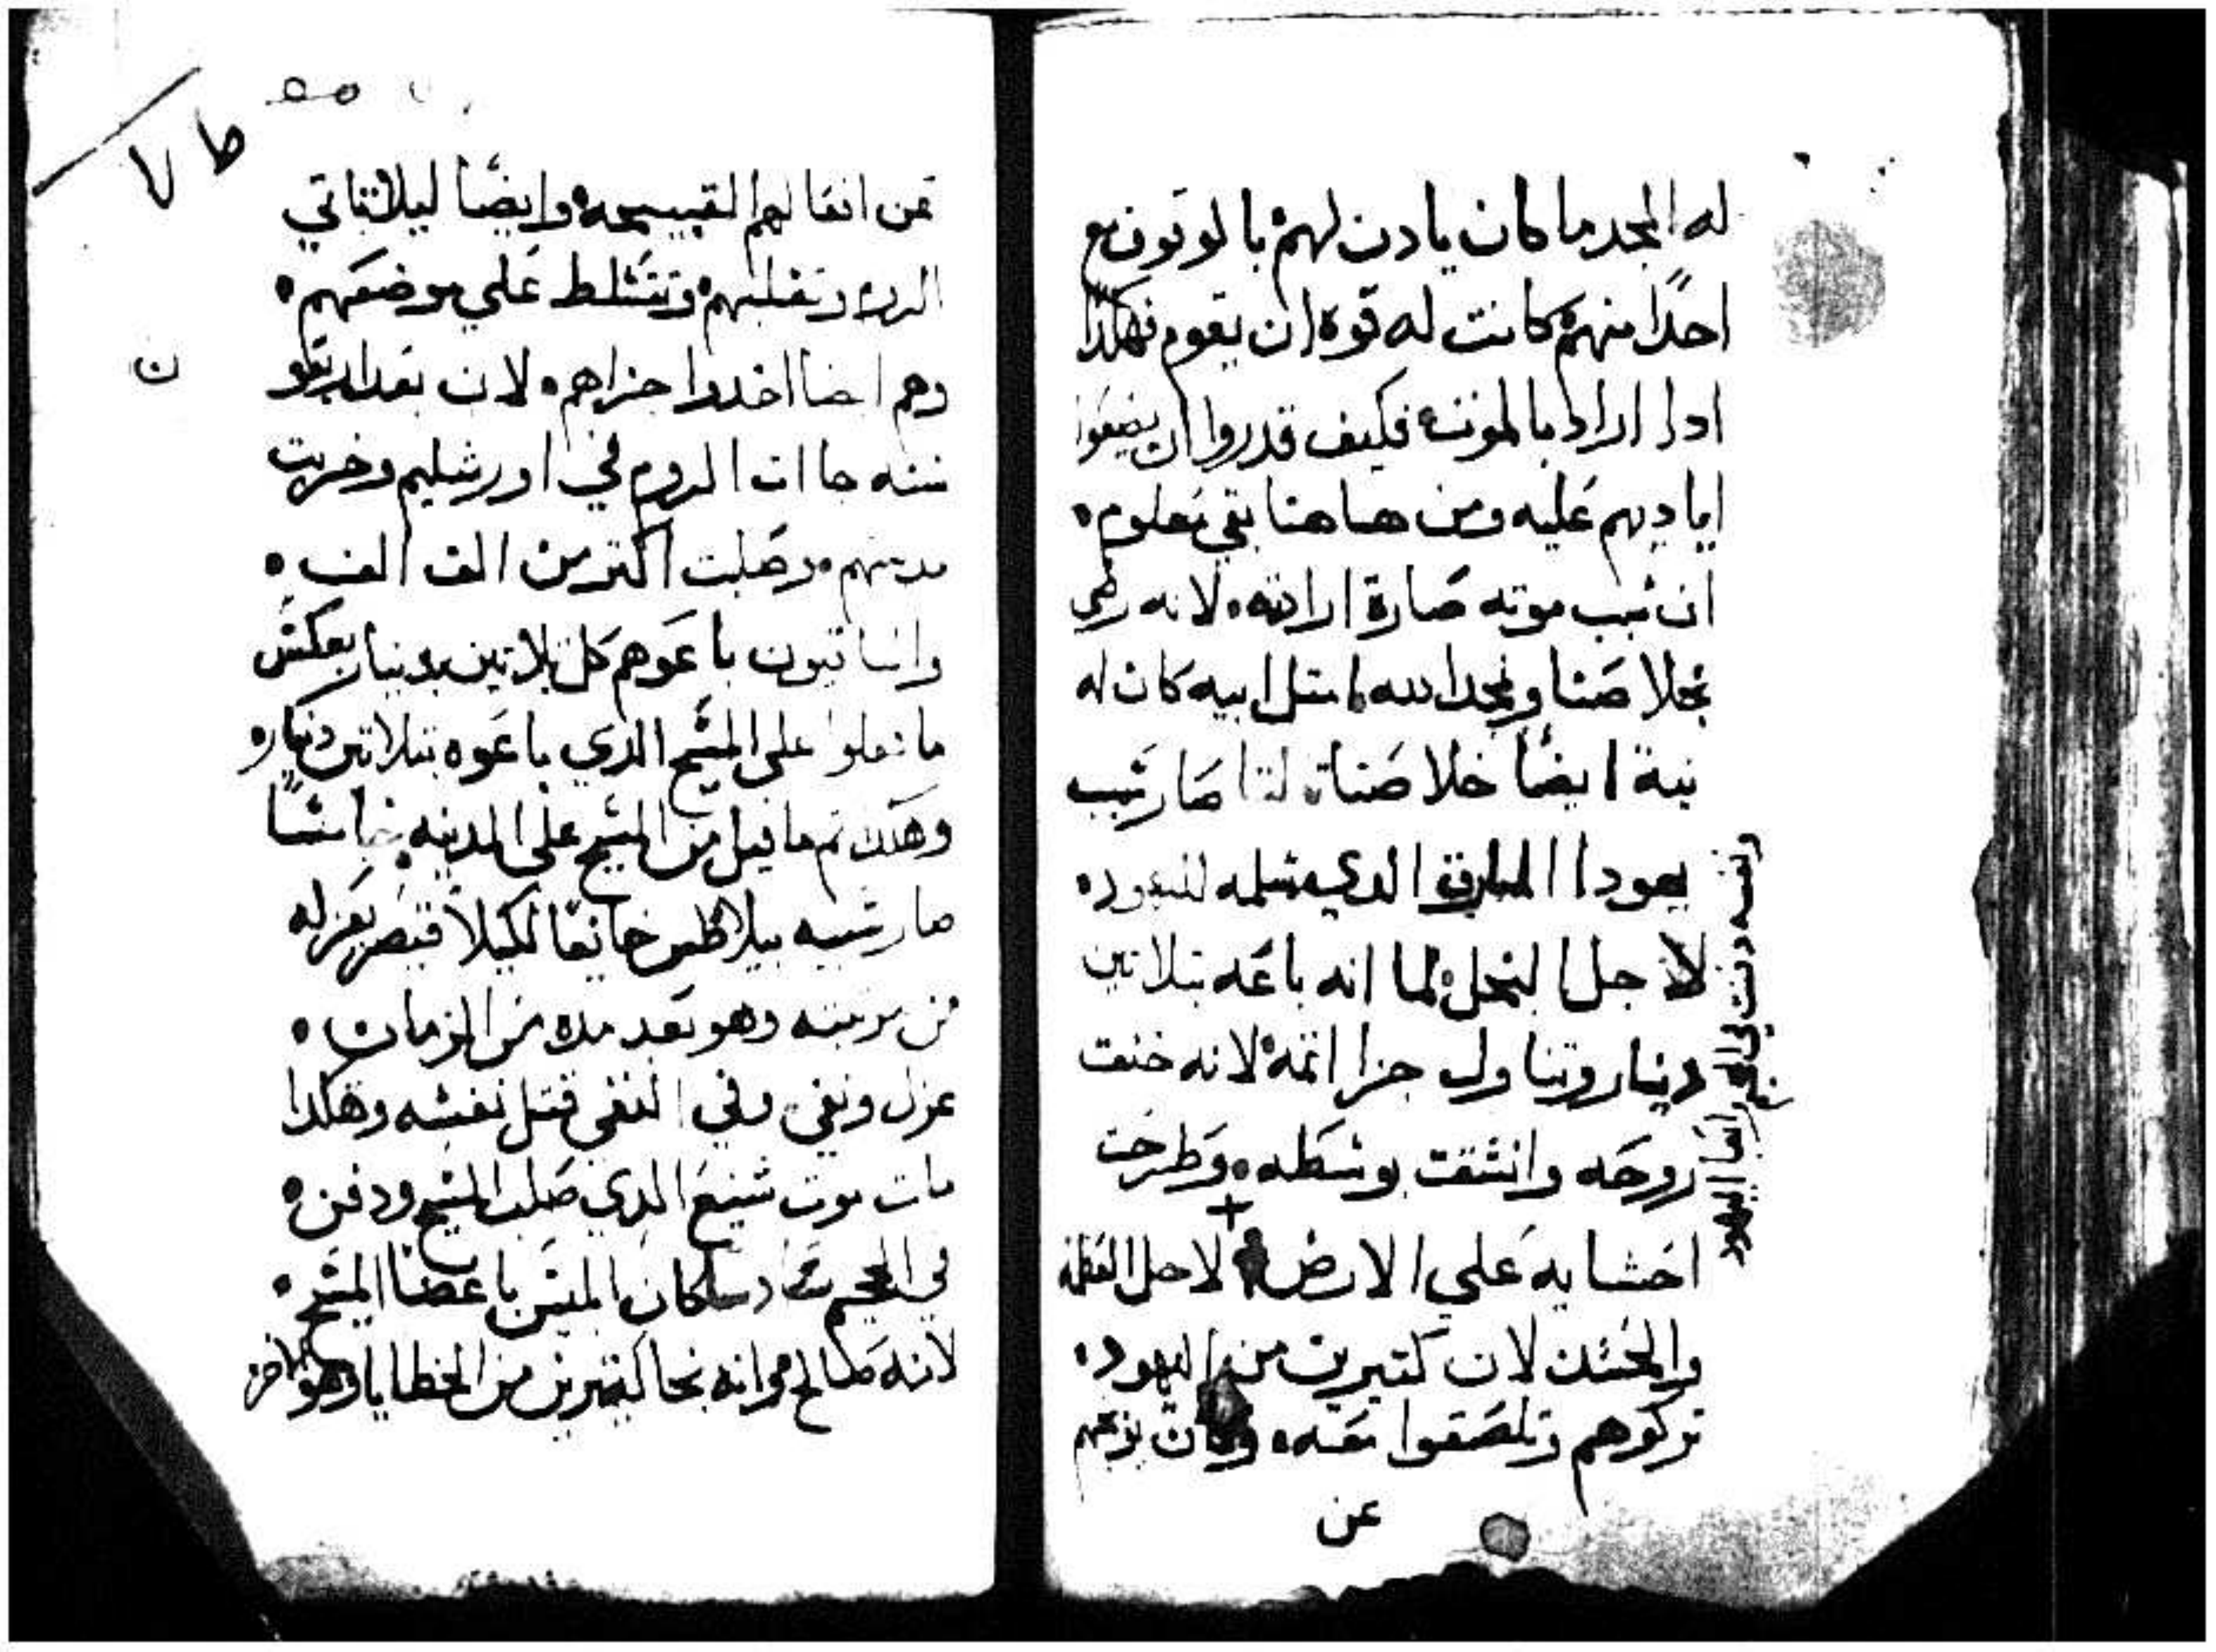 له المجد ما كان يادن لهم بالوتوب مع
احدًا منهم كانت له قوة ان يقوم فهكدا
ادا اراد بالمونه فكيف قدروا ان يضعوا
اياديهم عليه ومن هاهنا بقي معلوم
ان سبب موته صارة ارادته لانه رضي
بخلاصنا وبمجد الله لا متل ابيه كان له
نية ايضًا خلاصنا لنا صار سبب
يهودا السارق الدي سلمه لليهود
لاجل البخل لما انه باعه بتلاتين
دينار وتناول جزا اتمه لانه خنقت
روحه وانشقت بوسطه وطرحت
احشايه علي الارض لاجل العظمه
والحسد لان كتيرين من اليهود
تركوهم وتلصقوا معه وكان يوبخهم
عن
ايضا اليهود
عن افعالهم القبيحه وايضًا ليلا تاتي
الروم وتغلبهم وتتسلط علي موضعهم
وهم ايضا اخدوا جزاهم لان بعد اربعو
سنه جاات الروم في اورشليم وخربت
مدينهم وصلبت اكتر من الف الف
والباقيون باعوهم كل تلاتين بدينار بعكس
ما فعلوا علي المسيح الدي باعوه بتلاتين دينار
وهكدا تم ما قيل من المسيح علي المدينه خامسًا
صار سببه بيلاطس خايفًا لكيلا قيصر يعزله
من مرتبته وهو بعد مده من الزمان
عزل ونفي وفي النفي قتل نفسه وهكدا
مات موت شنيع الدي صلب المسيح ودفن
في الجحيم سادسا كان ابليس باغضا المسيح
لانه صالح مرانه نجا كتيرين من الخطايا وهو